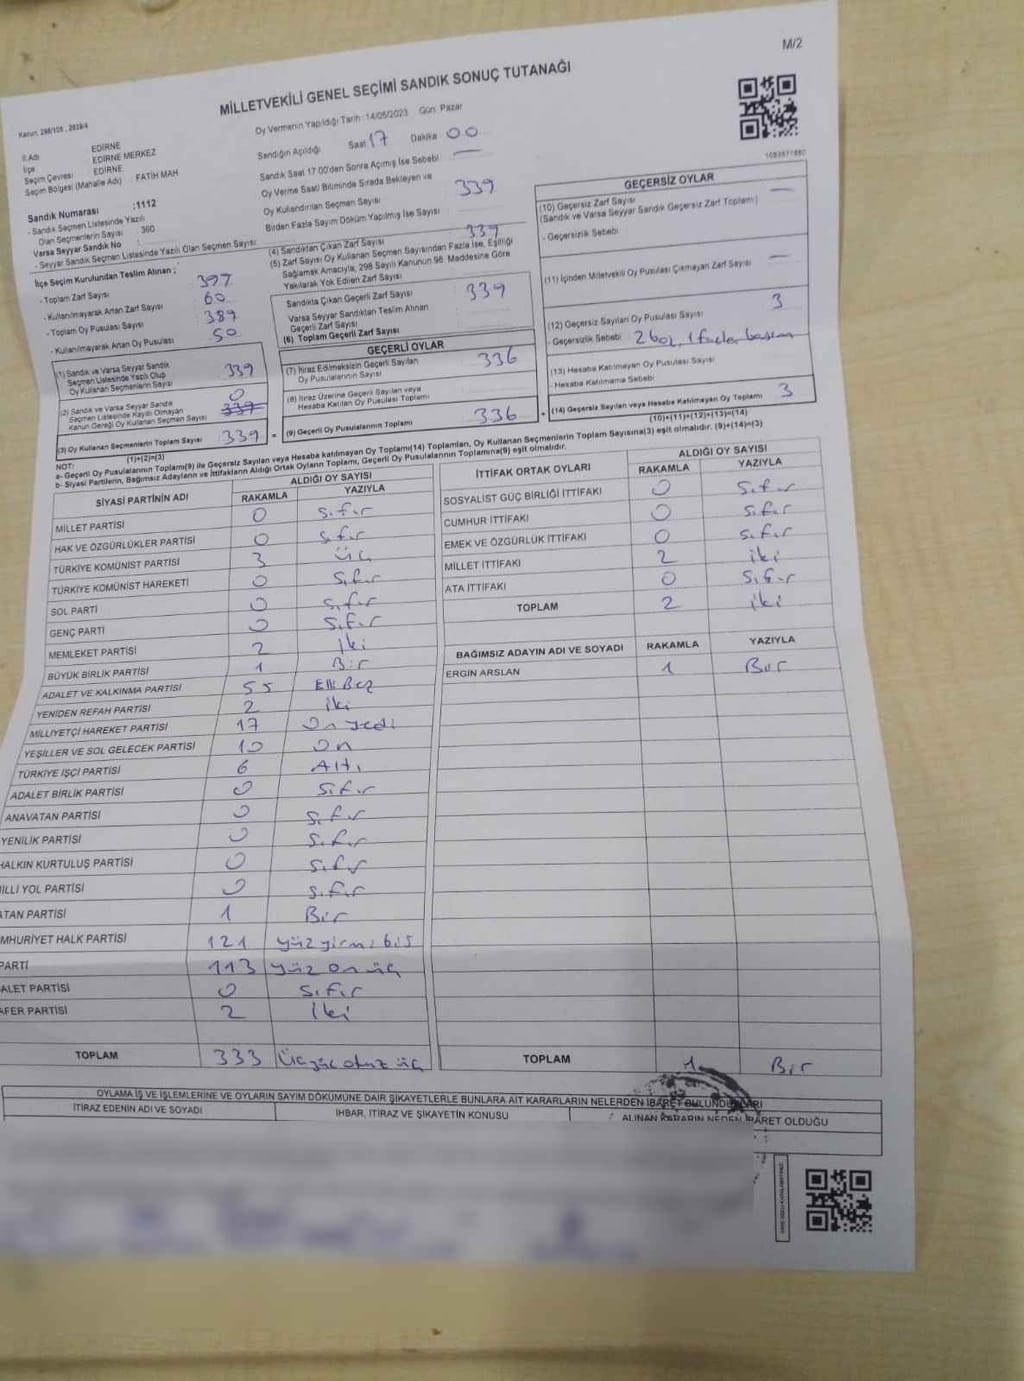 M/2
MİLLETVEKİLİ GENEL SEÇİMİ SANDIK SONUÇ TUTANAĞI
Kanun: 298/105 , 2839/4
Oy Vermenin Yapıldığı Tarih :14/05/2023 Gün: Pazar
İl Adı EDİRNE
İlçe EDİRNE MERKEZ
Seçim Çevresi EDİRNE
Seçim Bölgesi (Mahalle Adı) : FATİH MAH
Sandık Numarası :1112
- Sandık Seçmen Listesinde Yazılı Olan Seçmenlerin Sayısı 360
Varsa Seyyar Sandık No
- Seyyar Sandık Seçmen Listesinde Yazılı Olan Seçmen Sayısı:
Sandığın Açıldığı Saat 17 Dakika 00
Sandık Saat 17:00'den Sonra Açımış İse Sebebi —
Oy Verme Saati Bitiminde Sırada Bekleyen ve
Oy Kullandırılan Seçmen Sayısı 339
Birden Fazla Sayım Döküm Yapılmış İse Sayısı
İlçe Seçim Kurulundan Teslim Alınan ;
- Toplam Zarf Sayısı 397
- Kullanılmayarak Artan Zarf Sayısı 60
- Toplam Oy Pusulası Sayısı 389
- Kullanılmayarak Artan Oy Pusulası 50
(1) Sandık ve Varsa Seyyar Sandık Seçmen Listesinde Yazılı Olup Oy Kullanan Seçmenlerin Sayısı 339
(2) Sandık ve Varsa Seyyar Sandık Seçmen Listesinde Kaydı Olmayan Kanun Gereği Oy Kullanan Seçmen Sayısı 0 339
(3) Oy Kullanan Seçmenlerin Toplam Sayısı 339
(1)+(2)=(3)
(4) Sandıktan Çıkan Zarf Sayısı 339
(5) Zarf Sayısı Oy Kullanan Seçmen Sayısından Fazla İse, Eşitliği
Sağlamak Amacıyla, 298 Sayılı Kanunun 98. Maddesine Göre
Yakılarak Yok Edilen Zarf Sayısı
Sandıkta Çıkan Geçerli Zarf Sayısı 339
Varsa Seyyar Sandıktan Teslim Alınan
Geçerli Zarf Sayısı
(6) Toplam Geçerli Zarf Sayısı
GEÇERLİ OYLAR
(7) İtiraz Edilmeksizin Geçerli Sayılan Oy Pusulalarının Sayısı 336
(8) İtiraz Üzerine Geçerli Sayılan veya Hesaba Katılan Oy Pusulası Toplamı
(9) Geçerli Oy Pusulalarının Toplamı 336
GEÇERSİZ OYLAR
(10) Geçersiz Zarf Sayısı —
(Sandık ve Varsa Seyyar Sandık Geçersiz Zarf Toplamı)
- Geçersizlik Sebebi
(11) İçinden Milletvekili Oy Pusulası Çıkmayan Zarf Sayısı —
(12) Geçersiz Sayılan Oy Pusulası Sayısı 3
- Geçersizlik Sebebi 2 boş, 1 fazla
(13) Hesaba Katılmayan Oy Pusulası Sayısı
- Hesaba Katılmama Sebebi
(14) Geçersiz Sayılan veya Hesaba Katılmayan Oy Toplamı 3
(10)+(11)+(12)+(13)=(14)
NOT:
a- Geçerli Oy Pusulalarının Toplamı(9) ile Geçersiz Sayılan veya Hesaba katılmayan Oy Toplamı(14) Toplamları, Oy Kullanan Seçmenlerin Toplam Sayısına(3) eşit olmalıdır. (9)+(14)=(3)
b- Siyasi Partilerin, Bağımsız Adayların ve İttifakların Aldığı Ortak Oyların Toplamı, Geçerli Oy Pusulalarının Toplamına(9) eşit olmalıdır.
SİYASİ PARTİNİN ADI ALDIĞI OY SAYISI
RAKAMLA YAZIYLA
MİLLET PARTİSİ 0 Sıfır
HAK VE ÖZGÜRLÜKLER PARTİSİ 0 Sıfır
TÜRKİYE KOMÜNİST PARTİSİ 3 Üç
TÜRKİYE KOMÜNİST HAREKETİ 0 Sıfır
SOL PARTİ 0 Sıfır
GENÇ PARTİ 0 Sıfır
MEMLEKET PARTİSİ 2 İki
BÜYÜK BİRLİK PARTİSİ 1 Bir
ADALET VE KALKINMA PARTİSİ 55 Elli Beş
YENİDEN REFAH PARTİSİ 2 İki
MİLLİYETÇİ HAREKET PARTİSİ 17 On yedi
YEŞİLLER VE SOL GELECEK PARTİSİ 10 On
TÜRKİYE İŞÇİ PARTİSİ 6 Altı
ADALET BİRLİK PARTİSİ 0 Sıfır
ANAVATAN PARTİSİ 0 Sıfır
YENİLİK PARTİSİ 0 Sıfır
HALKIN KURTULUŞ PARTİSİ 0 Sıfır
İLLİ YOL PARTİSİ 0 Sıfır
ATAN PARTİSİ 1 Bir
MHURİYET HALK PARTİSİ 121 yüz yirmi bir
PARTİ 113 yüz on üç
ALET PARTİSİ 0 Sıfır
AFER PARTİSİ 2 İki
TOPLAM 333 Üçyüz otuz üç
İTTİFAK ORTAK OYLARI ALDIĞI OY SAYISI
RAKAMLA YAZIYLA
SOSYALİST GÜÇ BİRLİĞİ İTTİFAKI 0 Sıfır
CUMHUR İTTİFAKI 0 Sıfır
EMEK VE ÖZGÜRLÜK İTTİFAKI 0 Sıfır
MİLLET İTTİFAKI 2 iki
ATA İTTİFAKI 0 Sıfır
TOPLAM 2 iki
BAĞIMSIZ ADAYIN ADI VE SOYADI RAKAMLA YAZIYLA
ERGİN ARSLAN 1 Bir
TOPLAM 1 Bir
OYLAMA İŞ VE İŞLEMLERİNE VE OYLARIN SAYIM DÖKÜMÜNE DAİR ŞİKAYETLERLE BUNLARA AİT KARARLARIN NELERDEN İBARET BULUNDUKLARI
İTİRAZ EDENİN ADI VE SOYADI İHBAR, İTİRAZ VE ŞİKAYETİN KONUSU ALINAN KARARIN NEDEN İBARET OLDUĞU